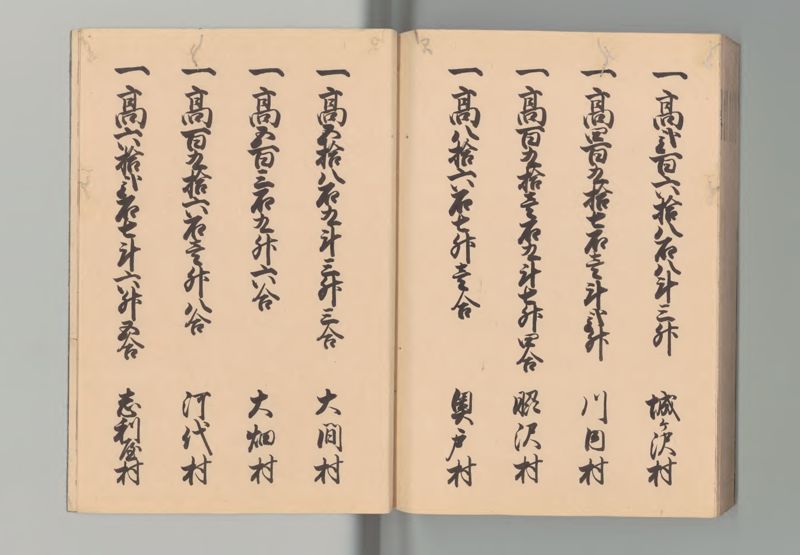 一高弐百六拾八石八斗三升 城ヶ沢村
一高四百九拾七石壱斗弐升 川内村
一高百九拾壱石九斗七升四合 脇沢村
一高八拾六石七升壱合 奥戸村
一高五拾八石九斗三升三合 大間村
一高五百三石九升六合 大畑村
一高百九拾六石壱升八合 河代村
一高六拾弐石七斗六升五合 志利屋村